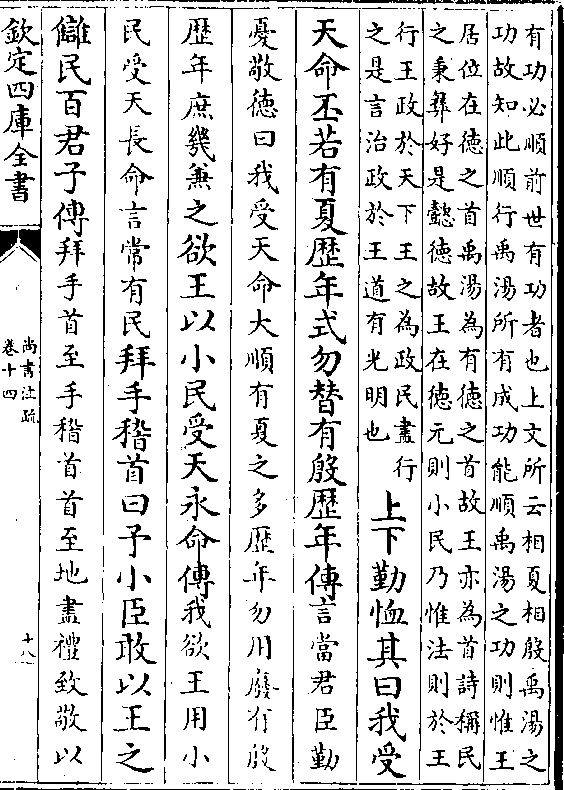 有功必順前世有功者也上文所云相夏相殷禹湯之
功故知此順行禹湯所有成功能順禹湯之功則惟王
居位在德之首禹湯為有德之首故王亦為首詩稱民
之秉彝好是懿德故王在德元則小民乃惟法則於王
行王政於天下王之為政民盡行
之是言治政於王道有光明也
上下勤恤其曰我受
天命丕若有夏歴年式勿替有殷歴年傳言當君臣勤
憂敬德曰我受天命大順有夏之多歴年勿用廢有殷
歴年庶幾兼之欲王以小民受天永命傳我欲王用小
民受天長命言常有民拜手稽首曰予小臣敢以王之
讎民百君子傳拜手首至手稽首首至地盡禮致敬以
欽定四庫全書
尚書注疏
卷十四
十八